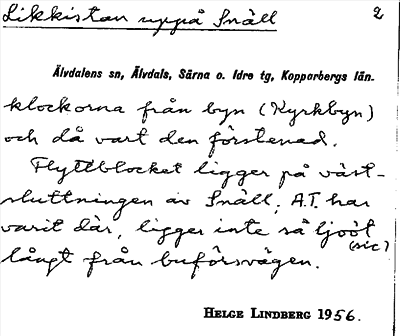 Likkistan uppå Snäll 2
Älvdalens sn, Älvdals, Särna o. Idre tg, Kopparbergs län.
klockorna från byn (Kyrkbyn)
och då vart den förstenad.
Flyttblocket ligger på väst-
sluttningen av Snäll, A.T. har
varit där, ligger inte så ljoot
(sic)
långt från buförsvägen.
HELGE LINDBERG 1956.